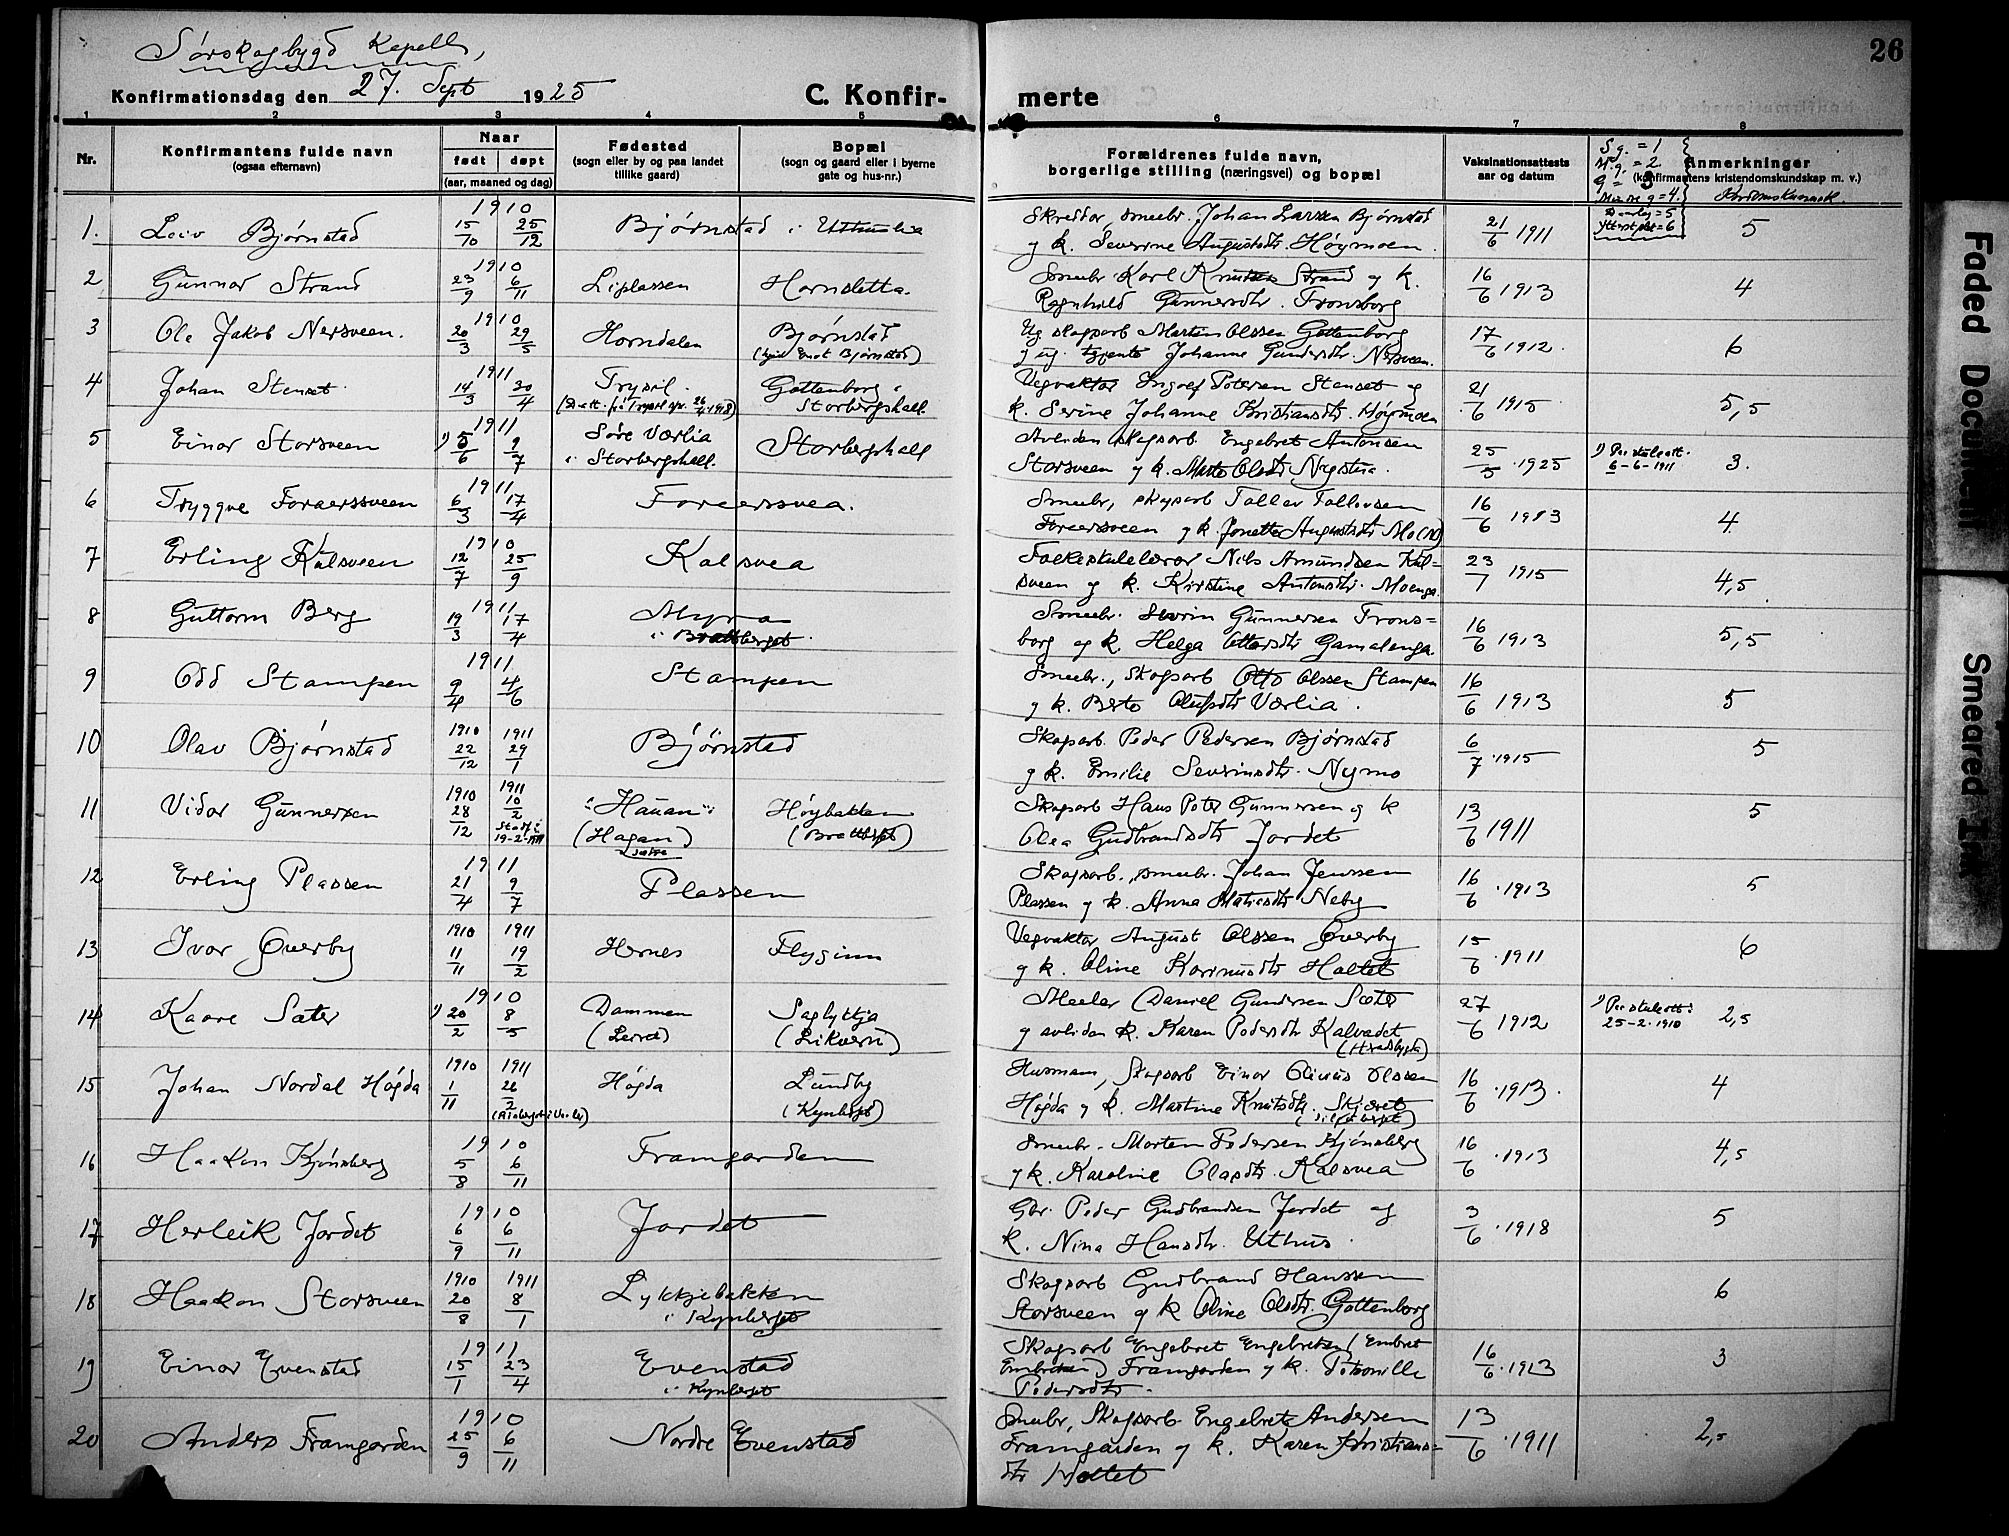 Sørskogbygd Kapell,
26
Konfirmationsdag den 27. Sept 1925
C. Konfir-
merte
1 2 3 4 5 6 7 8
Nr.
Konfirmantens fulde navn
(ogsaa efternavn)
Naar
født døpt
(aar, maaned og dag)
Fødested
(sogn eller by og paa landet
tillike gaard)
Bopæl
(sogn og gaard eller i byerne
gate og hus-nr.)
Forældrenes fulde navn,
borgerlige stilling (næringsvei) og bopæl
Vaksinationsattests
aar og datum
S g. = 1
M. g. = 2
g = 3
Mindre g = 4
Daarleg = 5
Ytterst slet = 6
Anmerkninger
(konfirmantens kristendomskundskap m. v.)
1. Leiv Bjørnstad 1910 15/10 25/12 Bjørnstad i
Skredder, smbr. Johan Larssen Bjørnstad
og k. Severine Augustsdtr Høymoen. 21/6 1911 5
2 Gunnar Strand 1910 23/9 6/11 Liplassen Hornsletta.
Smbr. Karl Knutsen Strand og k.
Ragnhild Gunnersdtr. Fronsborg 16/6 1913 4
3 Ole Jakob Nersveen. 1910 20/3 29/5 Horndalen Bjørnstad
(hjå Enst Bjørnstad)
Ug. skogsarb Martin Olssen Gottenborg
og ug. tjente Johanne Gundersdtr. Nersveen. 17/6 1912. 6
4 Johan Stenset 1911 14/3 30/4 Trysil.
Gottenborg i
Storbergshall
Vegvaktar Ingolf Petersen Stenset og
k. Serine Johanne Kristiansdtr. Høymoen 21/6 1915 5,5
5 Einar Storsveen 1) 1911 5/6 9/7 Søre Værlia
i Storbergshall. Storbergshall
Avliden skogsarb Engebret Antonsen
Storsveen og k. Marte Olsdtr Nystua. 25/5 1925 1) Per skuleatt.
6-6-1911 3.
6 Tryggve Foraerssveen 1911 6/3 17/4 Foraerssvea.
Smbr, skogsarb Tollev Tollevsen
Foraerssveen og k. Jonette Augustsdtr Mo(en) 16/6 1913 4
7 Erling Kalsveen 1910 12/7 25/9 Kalsvea
Folkeskulelærar Nils Amundsen Kal=
sveen og k. Kirstine Antonsdtr. Moenga. 23/7 1915 4,5
8 Guttorm Berg 1911 19/3 17/4 Myra
i Brattberget.
Smbr. Sevrin Gunnersen Frons=
borg og k. Helga Ottersdtr Gamalenga. 16/6 1913 5,5
9 Odd Stampen 1911 9/4 4/6 Stampen
Smbr., Skogsarb Otto Olssen Stampen
og k. Berte Olufsdtr Værlia. 16/6 1913 5
10 Olav Bjørnstad 1910 22/12 1911 29/1 Bjørnstad
Skogsarb. Peder Pedersen Bjørnstad
og k. Emilie Severinsdtr. Nymo 6/7 1915 5
11 Vidar Gunnersen 1910 28/12 1911 10/2 Stadf. i
19-2-1911
"Hauan"
(Hagan) Høgbakken
(Brattberget)
Skogsarb Hans Peter Gunnersen og k
Olea Gudbrandsdtr Jordet 13/6 1911 5
12 Erling Plassen 1911 21/4 9/7 Plassen
Skogsarb., smbr. Johan Jenssen
Plassen og k. Anna Matiesdtr Neby 16/6 1913 5
13 Ivar Øverby 1910 11/11 1911 19/2 Hernes Flysinn
Vegvaktar August Olssen Øverby
og k. Oline Karinusdtr Haltet 15/6 1911 6
14 Kaare Sæter 1) 1910 20/2 8/5 Dammen
(Leiret) Saglykkja
(Likvern)
Meelar Daniel Gundersen Sæter
og avliden k. Karen Pedersdtr Kalvadet
(Heradsbygda) 27/6 1912 1) Per skuleatt.:
25-2-1910 2,5
15 Johan Nordal Høgda 1910 1/11 1911 26/2 Høgda Lundby
(Kynberget)
Husmann, Skogsarb Einar Olivius Olssen
Høgda og k. Martine Knutsdtr. Skjæret
16/6 1913. 4
16 Haakon Kjønsberg 1910 5/8 6/11 Framgarden
Smbr. Morten Pedersen Kjønsberg
og k. Karoline Olasdtr. Kalsvea 16/6 1913 4,5
17 Herleik Jordet 1910 6/9 6/11 Jordet
Gbr. Peder Gudbrandsen Jordet og
k. Nina Hansdtr. Uthus. 3/6 1918 5
18 Haakon Storsveen 1910 20/8 1911 8/1 Lykkjebakken
i Kynberget
Skogsarb Gudbrand Hanssen
Storsveen og k Oline Olsdtr. Gottenborg 6
19 Einar Evenstad 1911 15/1 23/4 Evenstad
i Kynberget
Skogsarb Engebret Engebretsen (Embret
Embretsen) Framgarden og k. Petronille
Pedersdtr. 16/6 1913 3
20 Anders Framgarden 1910 25/9 6/11 Nordre Evenstad
Smbr, Skogsarb Engebret Andersen
Framgarden og k. Karen Kristians=
dtr Holtet 13/6 1911 2,5
Faded Document
Smeared Ink